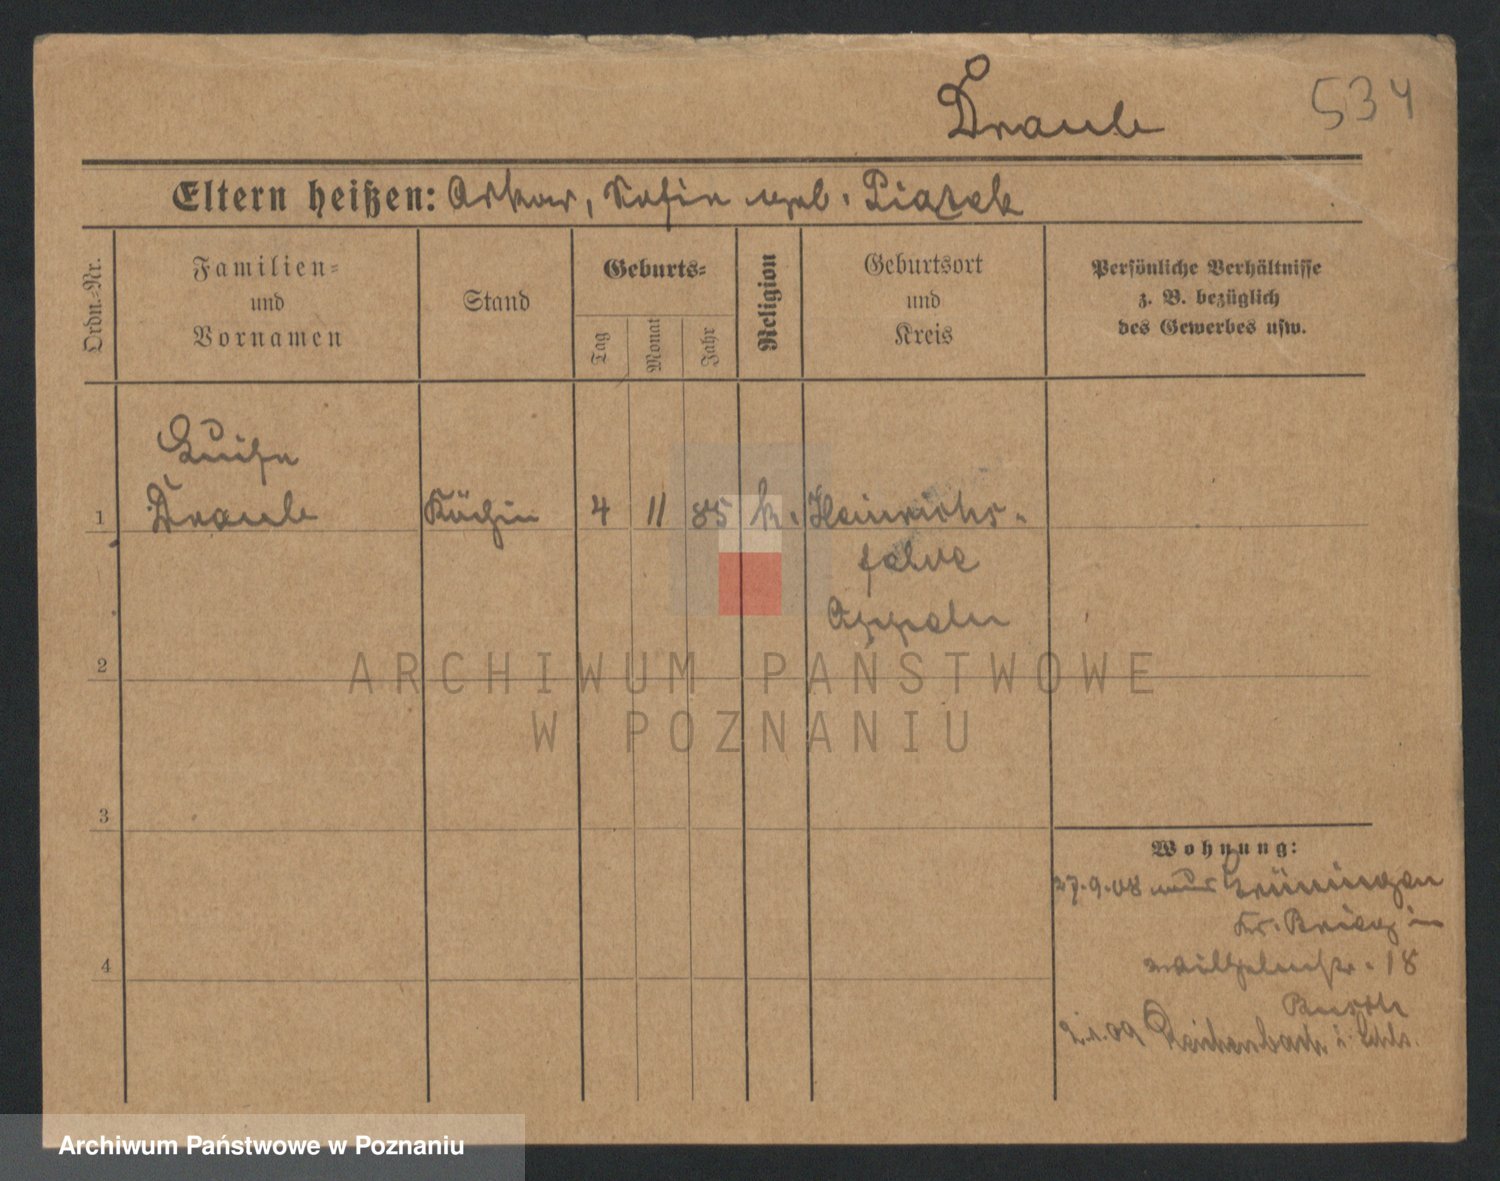 Draub
534
Eltern heißen: Oskar, Sofie geb. Piazek
Ordn.-Nr.
Familien-
und
Vornamen
Stand
Geburts-
Tag
Monat
Jahr
Religion
Geburtsort
und
Kreis
Persönliche Verhältnisse
z. B. bezüglich
des Gewerbes usw.
Luise
1 Draub Köchin 4 11 85 k. Heinrichs-
felde
Oppeln
2
ARCHIWUM PAŃSTWOWE
W POZNANIU
3
Wohnung:
27.9.08 Grüningen
Kr. Brieg in
Wilhelmstr. 18
4
2.1.09 Reichenbach i. Schls.
Archiwum Państwowe w Poznaniu